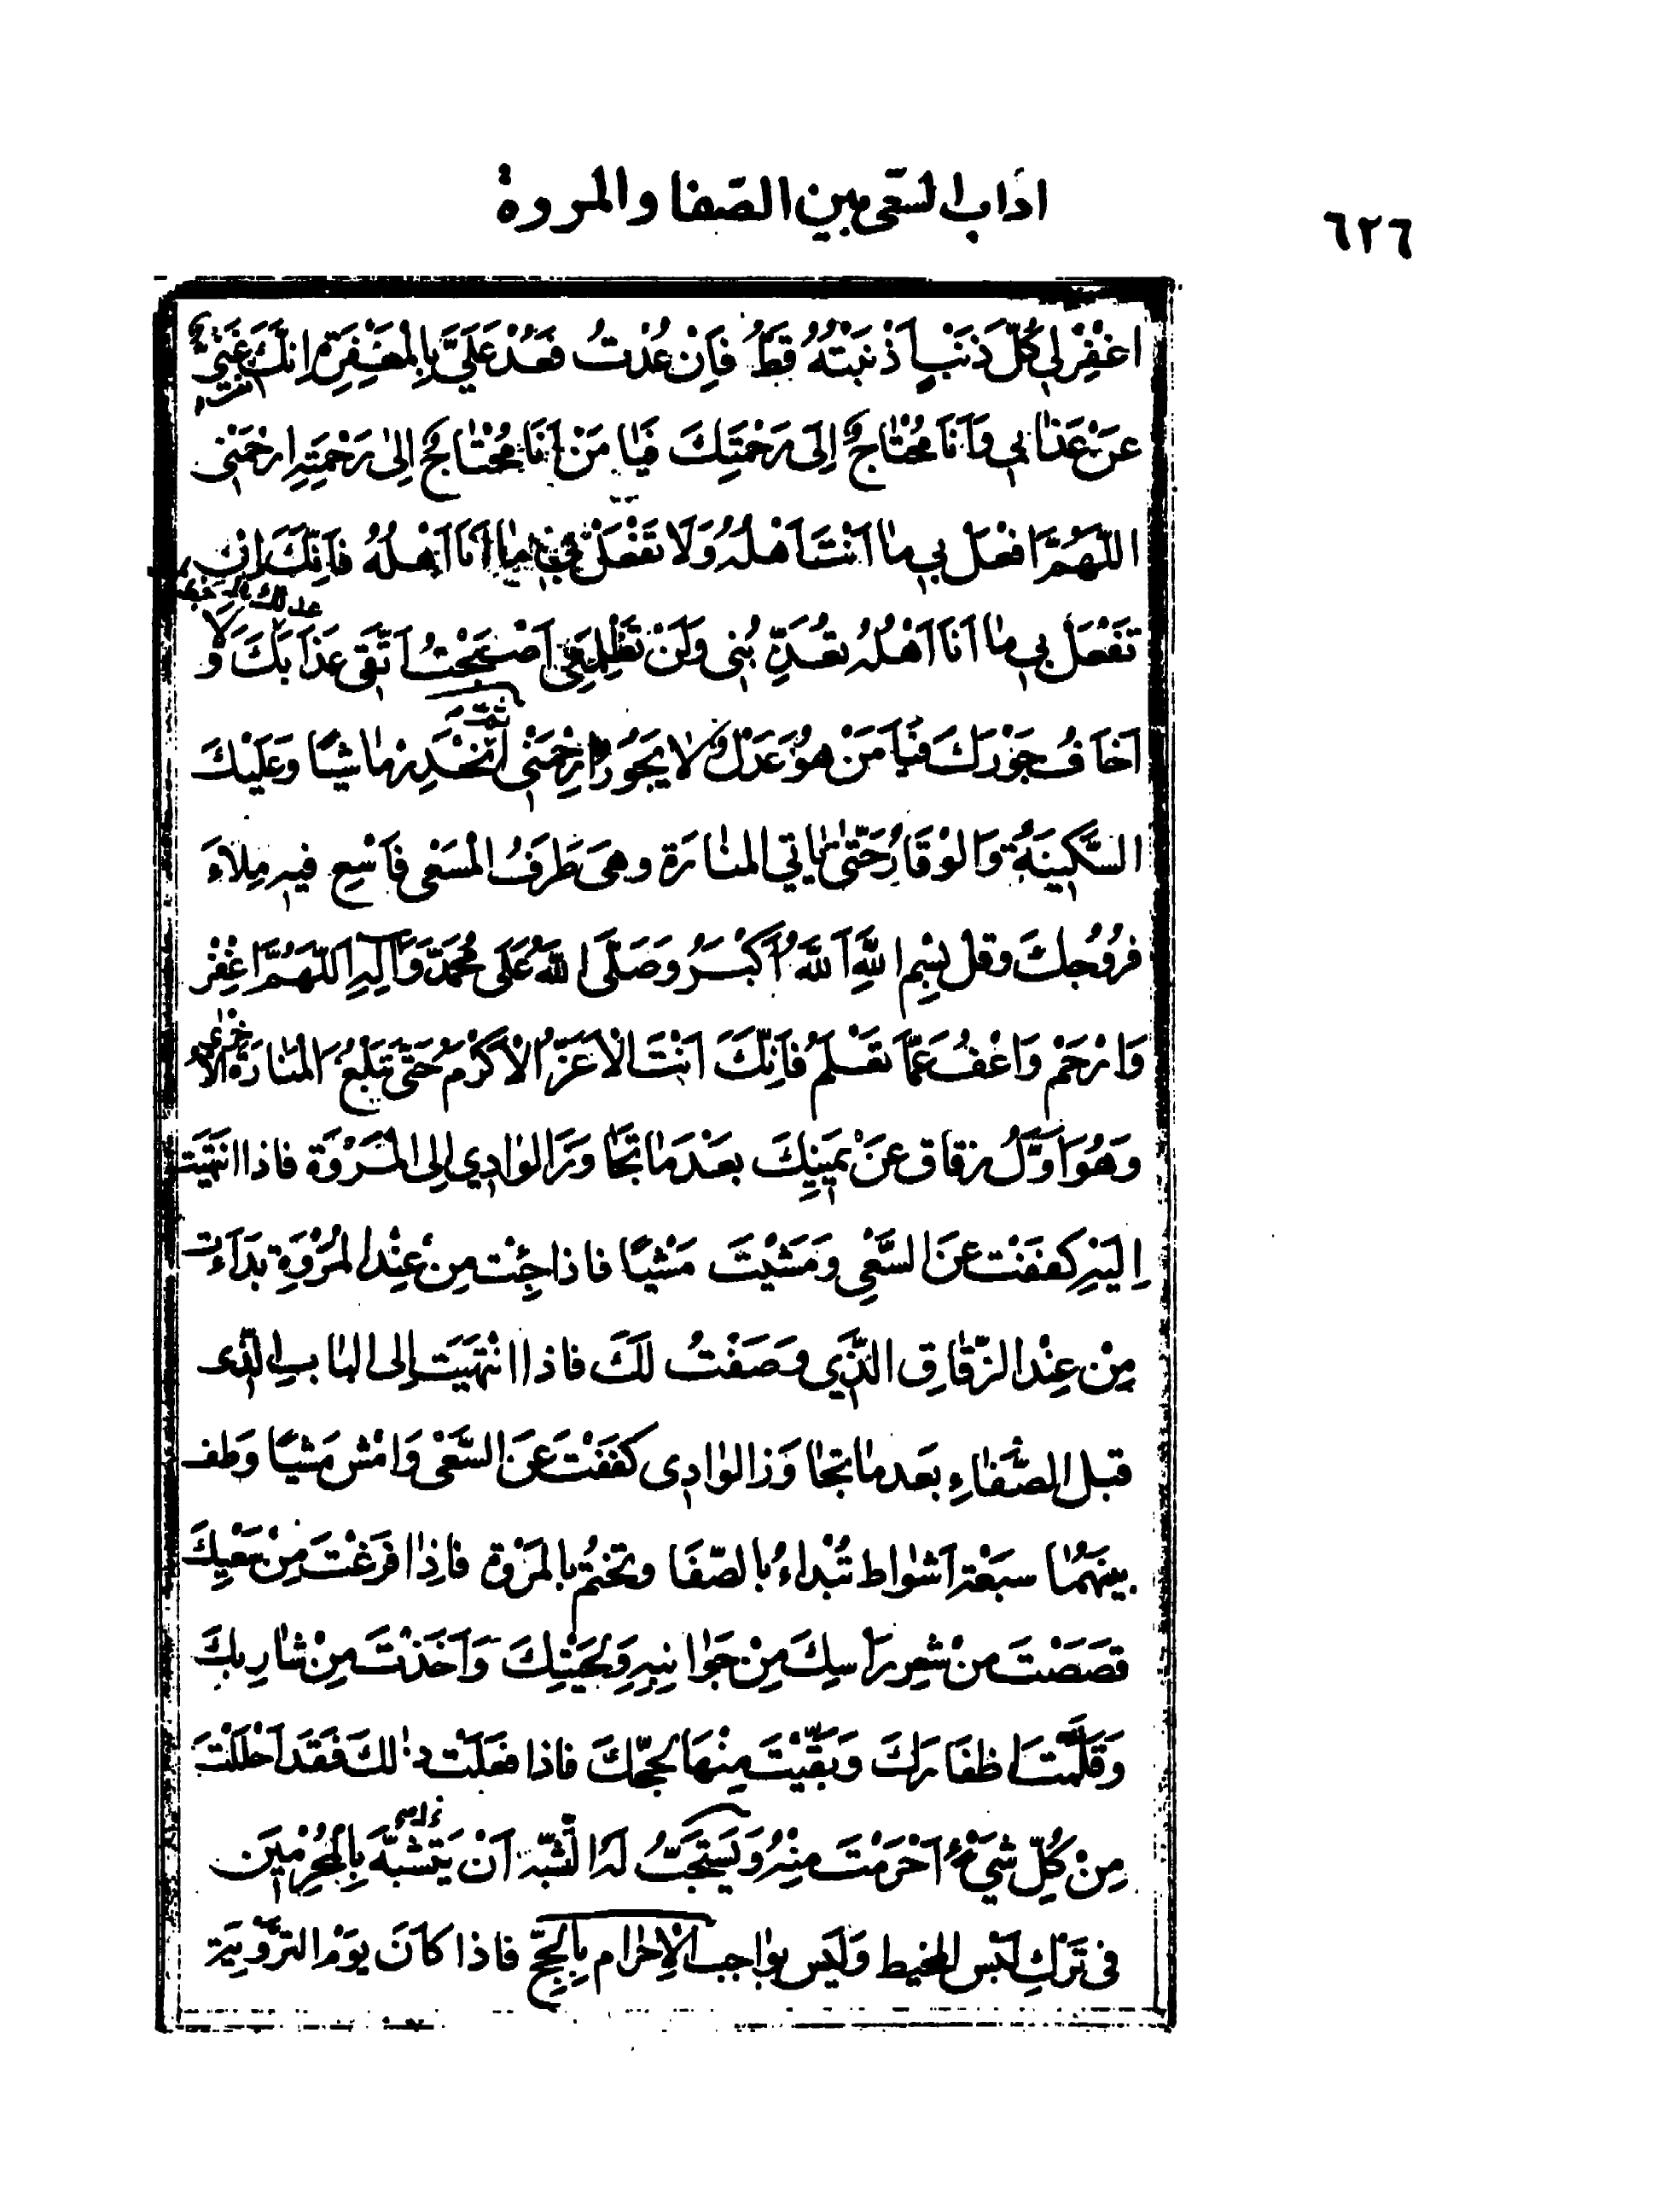 اداب السعی بین الصّفا والمروة
٦٢٦
اغْفِرْ لِي كُلَّ ذَنْبٍ أَذْنَبْتُهُ قَطُّ فَاِنْ عُدْتُ فَعُدْ عَلَيَّ بِالْمَغْفِرَةِ اِنَّكَ غَنِيٌّ
عَنْ عَذَابِي وَاَنَا مُحْتَاجٌ اِلَى رَحْمَتِكَ فَيَا مَنْ اَنَا مُحْتَاجٌ اِلىٰ رَحْمَتِهِ ارْحَمْنِي
اللّهُمَّ افْعَلْ بِي مٰا اَنْتَ اَهْلُهُ وَلَا تَفْعَلْ بِي مٰا اَنَا اَهْلُهُ فَاِنَّكَ اِنْ
تَفْعَلْ بِي مٰا اَنَا اَهْلُهُ تُعَذِّبْنِي وَلَنْ تَظْلِمَنِي اَصْبَحْتُ اَتَّقِي عَذَابَكَ وَلَا
اَخَافُ جَوْرَكَ فَيَا مَنْ هُوَ عَدْلٌ وَلَا يَجُورُ ارْحَمْنِي ثُمَّ انْحَدِرْ مٰاشِيًا وَعَلَيْكَ
السَّكِينَةُ وَالْوَقَارُ حَتّىٰ تٰاتِي المنٰارَة وهِيَ طَرَفُ الْمَسْعٰى فَاسْعِ فيهِ مِلَاءَ
فُرُوُجِكَ وقل بِسْمِ اللَّهِ اَللَّهُ أَكْبَرُ وَصَلَّى اللهُ عَلَى مُحَمَّدٍ وَآلِهِ اَللّهُمَّ اغْفِرْ
وَارْحَمْ وَاعْفُ عَمّا تَعْلَمُ فَاِنَّكَ اَنْتَ الْاَعَزُّ الْاَكْرَمُ حَتّىٰ تَبْلُغَ الْمَنٰارَةَ الْاُخْرٰى
وَهُوَ اَوَّلُ زقاق عَنْ يَمِينِكَ بَعْدَ مٰا تَجٰاوَزَ الوٰادِي اِلى الْمَرْوَة فاذا انْتَهَيْتَ
اِلَيْهِ كَفَفْتَ عَنِ السَّعْيِ وَمَشَيْتَ مَشْيًا فاذا جِئْتَ مِنْ عِنْدِ الْمَرْوَةِ بَدَاءْتَ
مِنْ عِنْدِ الزّقٰاقِ الَّذِي وَصَفْتُ لَكَ فاذا انْتَهَيْتَ اِلى البٰابِ الَّذِى
قبل الصَّفٰاءِ بَعدمٰا تجٰاوَزَ الوٰادِى كَفَفْتَ عَنِ السَّعْى وَامْشِ مَشيًا وَطف
بينَهُمٰا سبَعْة اَشوٰاط تُبْداءُ بالصّفَا وتختمُ بالْمَرْوَة فَاِذٰا فَرَغْتَ مِنْ سَعْيِكَ
قصَصْتَ مِنْ شعرِ رَاسِكَ مِنْ جَوٰانِبِهِ وَلِحْيَتِكَ وَاَخَذْتَ مِنْ شٰارِبِكَ
وَقَلَّمْتَ اظفَارَكَ وَبَقَّيْتَ مِنْهَا لِحَجِّكَ فاذا فعَلْتَ ذٰلِكَ فَقَدْ اَحْلَلْتَ
مِنْ كُلِّ شَيْءٍ اَحْرَمْتَ مِنْهُ وَيَسْتَحِبُّ لَهُ التَّشبّه اَنْ يَتَشَبَّهَ بِالْمُحْرِمِينَ
فى تَرْكِ لُبْسِ المخيط وَلَيْسَ بِوٰاجِب الْاِحْرٰام بِالْحَجِّ فاذا كٰانَ يَوْمُ التَّرْوِيَة